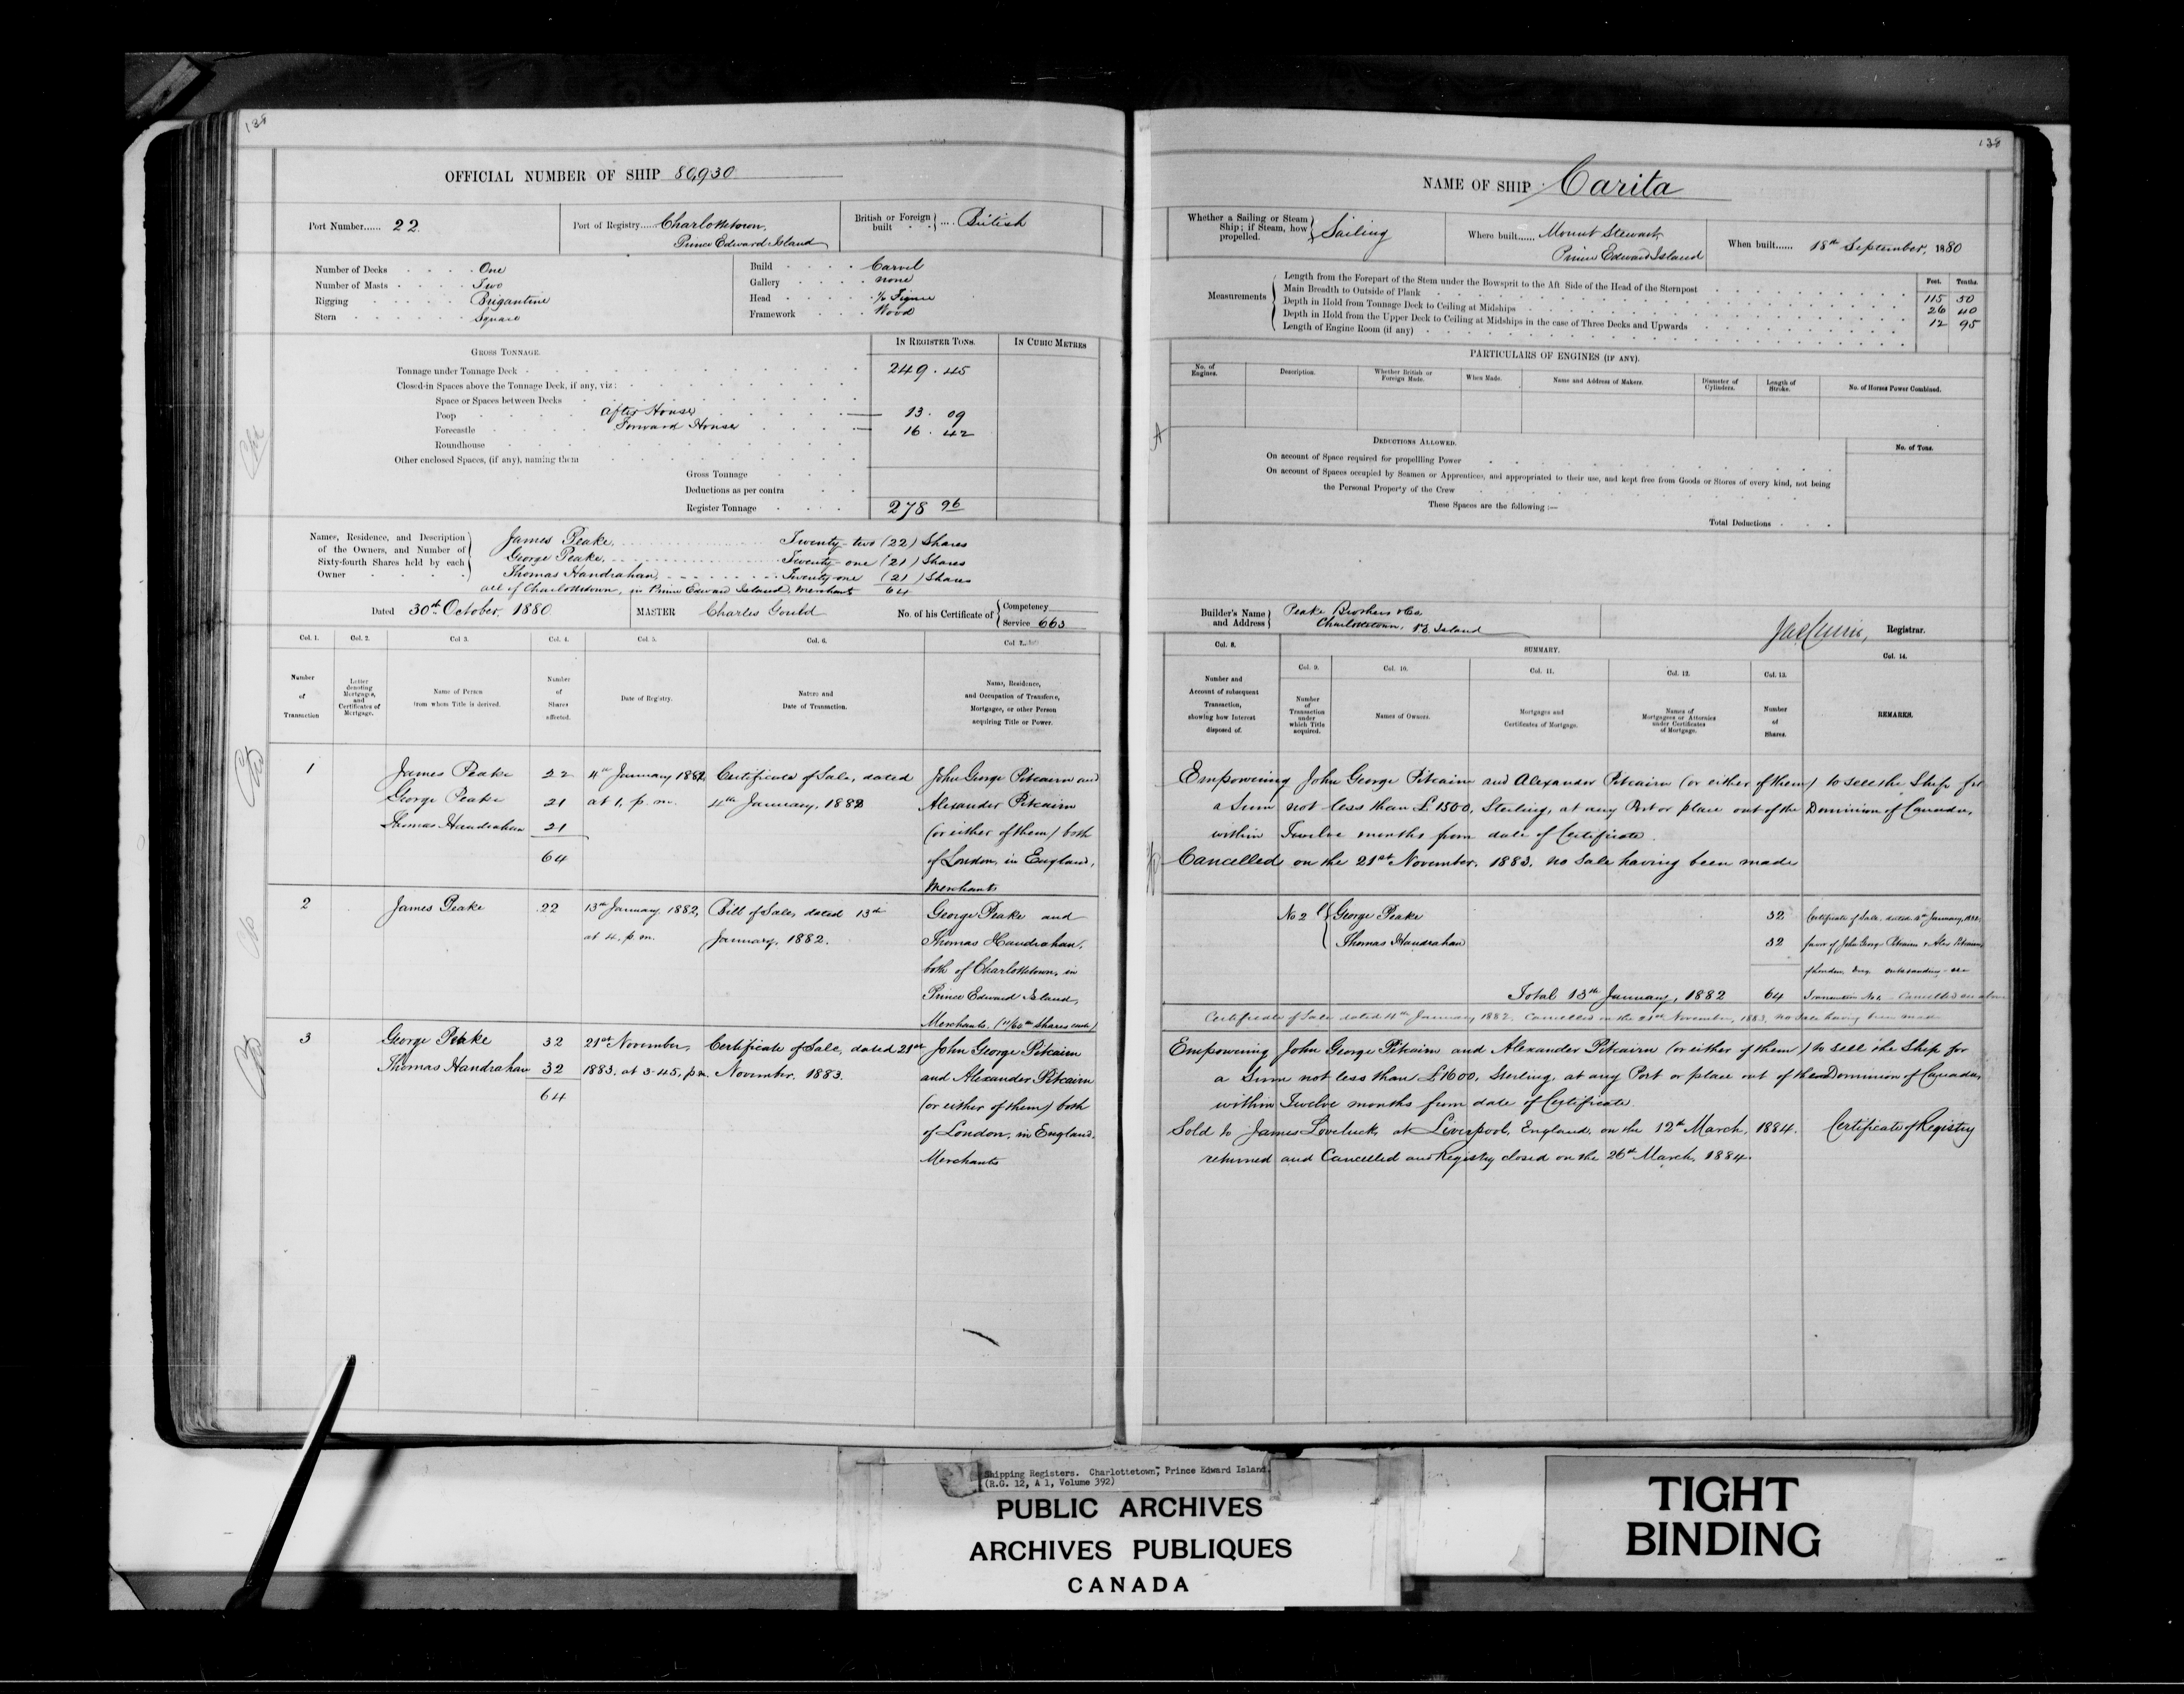 OFFICIAL NUMBER OF SHIP 80,930
Port Number...... 22.
Port of Registry...... Charlottetown,
Prince Edward Island
British or Foreign built .... British
Number of Decks One
Number of Masts Two
Rigging Brigantine
Stern Square
Build Carvel
Gallery none
Head ½ Figure
Framework Wood
GROSS TONNAGE.
IN REGISTER TONS.
IN CUBIC METRES
Tonnage under Tonnage Deck 249 . 45
Closed-in Spaces above the Tonnage Deck, if any, viz:
Space or Spaces between Decks
Poop After House 13 . 09
Forecastle Forward House 16 . 42
Roundhouse
Other enclosed Spaces, (if any), naming them
Gross Tonnage
Deductions as per contra
Register Tonnage 278 96
Names, Residence, and Description of the Owners, and Number of Sixty-fourth Shares held by each Owner
James Peake, Twenty-two (22) Shares
George Peake, Twenty-one (21) Shares
Thomas Handrahan, Twenty-one (21) Shares
all of Charlottetown, in Prince Edward Island, Merchants 64
Dated 30th October, 1880
MASTER Charles Gould
No. of his Certificate of Competency
Service 663
Col. 1. Col. 2. Col 3. Col. 4. Col. 5. Col. 6. Col 7.
Number of Transaction
Letter denoting Mortgages, and Certificates of Mortgage.
Name of Person from whom Title is derived.
Number of Shares affected.
Date of Registry.
Nature and Date of Transaction.
Name, Residence, and Occupation of Transferee, Mortgagee, or other Person acquiring Title or Power.
1
James Peake 22
George Peake 21
Thomas Handrahan 21
64
4th January 1882
at 1, p.m.
Certificate of Sale, dated
4th January, 1882
John George Pitcairn and
Alexander Pitcairn
(or either of them) both
of London, in England,
Merchants
2
James Peake 22
13th January, 1882,
at 4. p.m.
Bill of Sale, dated 13th
January, 1882.
George Peake and
Thomas Handrahan,
both of Charlottetown, in
Prince Edward Island,
Merchants. (11/64th Shares each)
3
George Peake 32
Thomas Handrahan 32
64
21st November,
1883. at 3-45, p.m.
Certificate of Sale, dated 21st
November. 1883.
John George Pitcairn
and Alexander Pitcairn
(or either of them) both
of London, in England.
Merchants
NAME OF SHIP Carita
Whether a Sailing or Steam Ship; if Steam, how propelled. Sailing
Where built...... Mount Stewart,
Prince Edward Island
When built...... 18th September, 1880
Measurements
Feet. Tenths.
Length from the Forepart of the Stem under the Bowsprit to the Aft Side of the Head of the Sternpost 115 50
Main Breadth to Outside of Plank 26 40
Depth in Hold from Tonnage Deck to Ceiling at Midships 12 95
Depth in Hold from the Upper Deck to Ceiling at Midships in the case of Three Decks and Upwards
Length of Engine Room (if any)
PARTICULARS OF ENGINES (IF ANY).
No. of Engines.
Description.
Whether British or Foreign Made.
When Made.
Name and Address of Makers.
Diameter of Cylinders.
Length of Stroke.
No. of Horses Power Combined.
DEDUCTIONS ALLOWED.
No. of Tons.
On account of Space required for propelling Power
On account of Spaces occupied by Seamen or Apprentices, and appropriated to their use, and kept free from Goods or Stores of every kind, not being
the Personal Property of the Crew
These Spaces are the following :—
Total Deductions
Builder's Name and Address
Peake Brothers & Co.
Charlottetown, P.E. Island
Registrar.
Col. 8.
SUMMARY.
Col. 9. Col. 10. Col. 11. Col. 12. Col. 13. Col. 14.
Number and Account of subsequent Transaction, showing how Interest disposed of.
Number of Transaction under which Title acquired.
Names of Owners.
Mortgages and Certificates of Mortgage.
Names of Mortgagees or Attornies under Certificates of Mortgage.
Number of Shares.
REMARKS.
Empowering John George Pitcairn and Alexander Pitcairn (or either of them) to sell the Ship for
a Sum not less than £1500, Sterling, at any Port or place out of the Dominion of Canada,
within Twelve months from date of Certificate.
Cancelled on the 21st November. 1883. no Sale having been made
No 2 George Peake 32
Thomas Handrahan 32
Total 13th January, 1882 64
Certificate of Sale, dated 4th January, 1882,
favor of John George Pitcairn & Alex Pitcairn
of London, Eng. outstanding - see
Transaction No 1. - Cancelled see above
Certificate of Sale dated 4th January 1882. Cancelled on the 21st November, 1883, no Sale having been made
Empowering John George Pitcairn and Alexander Pitcairn (or either of them) to sell the Ship for
a Sum not less than £1600, Sterling, at any Port or place out of the Dominion of Canada,
within Twelve months from date of Certificate.
Sold to James Loveluck, at Liverpool, England, on the 12th March, 1884. Certificate of Registry
returned and Cancelled and Registry closed on the 26th March, 1884.
Shipping Registers. Charlottetown, Prince Edward Island.
(R.G. 12, A 1, Volume 392)
PUBLIC ARCHIVES
ARCHIVES PUBLIQUES
CANADA
TIGHT
BINDING